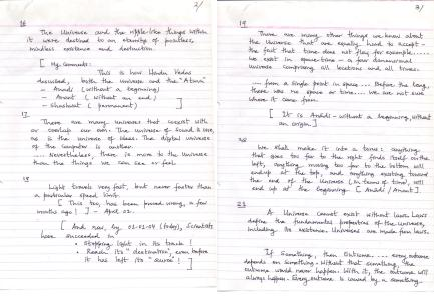 2/
16
The Universe and the ripple-like things within
it were destined to an eternity of pointless,
mindless existence and destruction.
[ My comments:
This is how Hindu Vedas
described, both the Universe and the "Atma"
- Anadi (without a beginning)
- Anant (without an end)
- Shashwat ( permanent) ]
17
There are many universes that coexist with
or overlap our own. The universe of sound is one,
as is the universe of ideas. The digital universe
of the computer is another.
... Nevertheless, there is more to the Universe
than the things we can see or feel.
18
Light travels very fast, but never faster than
a particular speed limit.
[ This too, has been proved wrong, a few
months ago! ] - April 02.
[ And now, by 01-01-04 (today), Scientists
have succeeded in
• Stopping light in its track!
• Reach its "destination", even before
it has left its "source"! ]
3/
19
There are many other things we know about
the Universe that are equally hard to accept -
the fact that time does not flow, for example..
we exist in space-time - a four dimensional
universe comprising all locations and all times.
.... from a single point in space... Before the bang,
there was no space or time... we are not sure
where it came from.
[ It is Anadi - without a beginning, without
an origin. ]
20
We shall make it into a torus: anything
that goes too far to the right finds itself on the
left, anything moving too far to the bottom will
end up at the top, and anything existing toward
the end of the Universe (in terms of time), will
end up at the beginning. [ Anadi / Anant ]
21
A Universe cannot exist without laws. Laws
define the fundamental properties of the Universe,
including its existence. Universes are made from laws.
If Something, then Outcome.... Every outcome
depends on something. Without that something, the
outcome would never happen. With it, the outcome will
always happen. Every outcome is caused by a something.